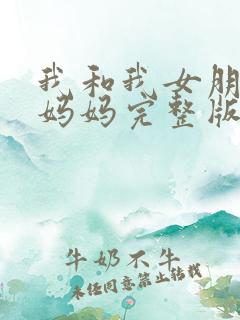 我和我女朋
妈妈完整版
牛奶不牛
未经同意禁止转载